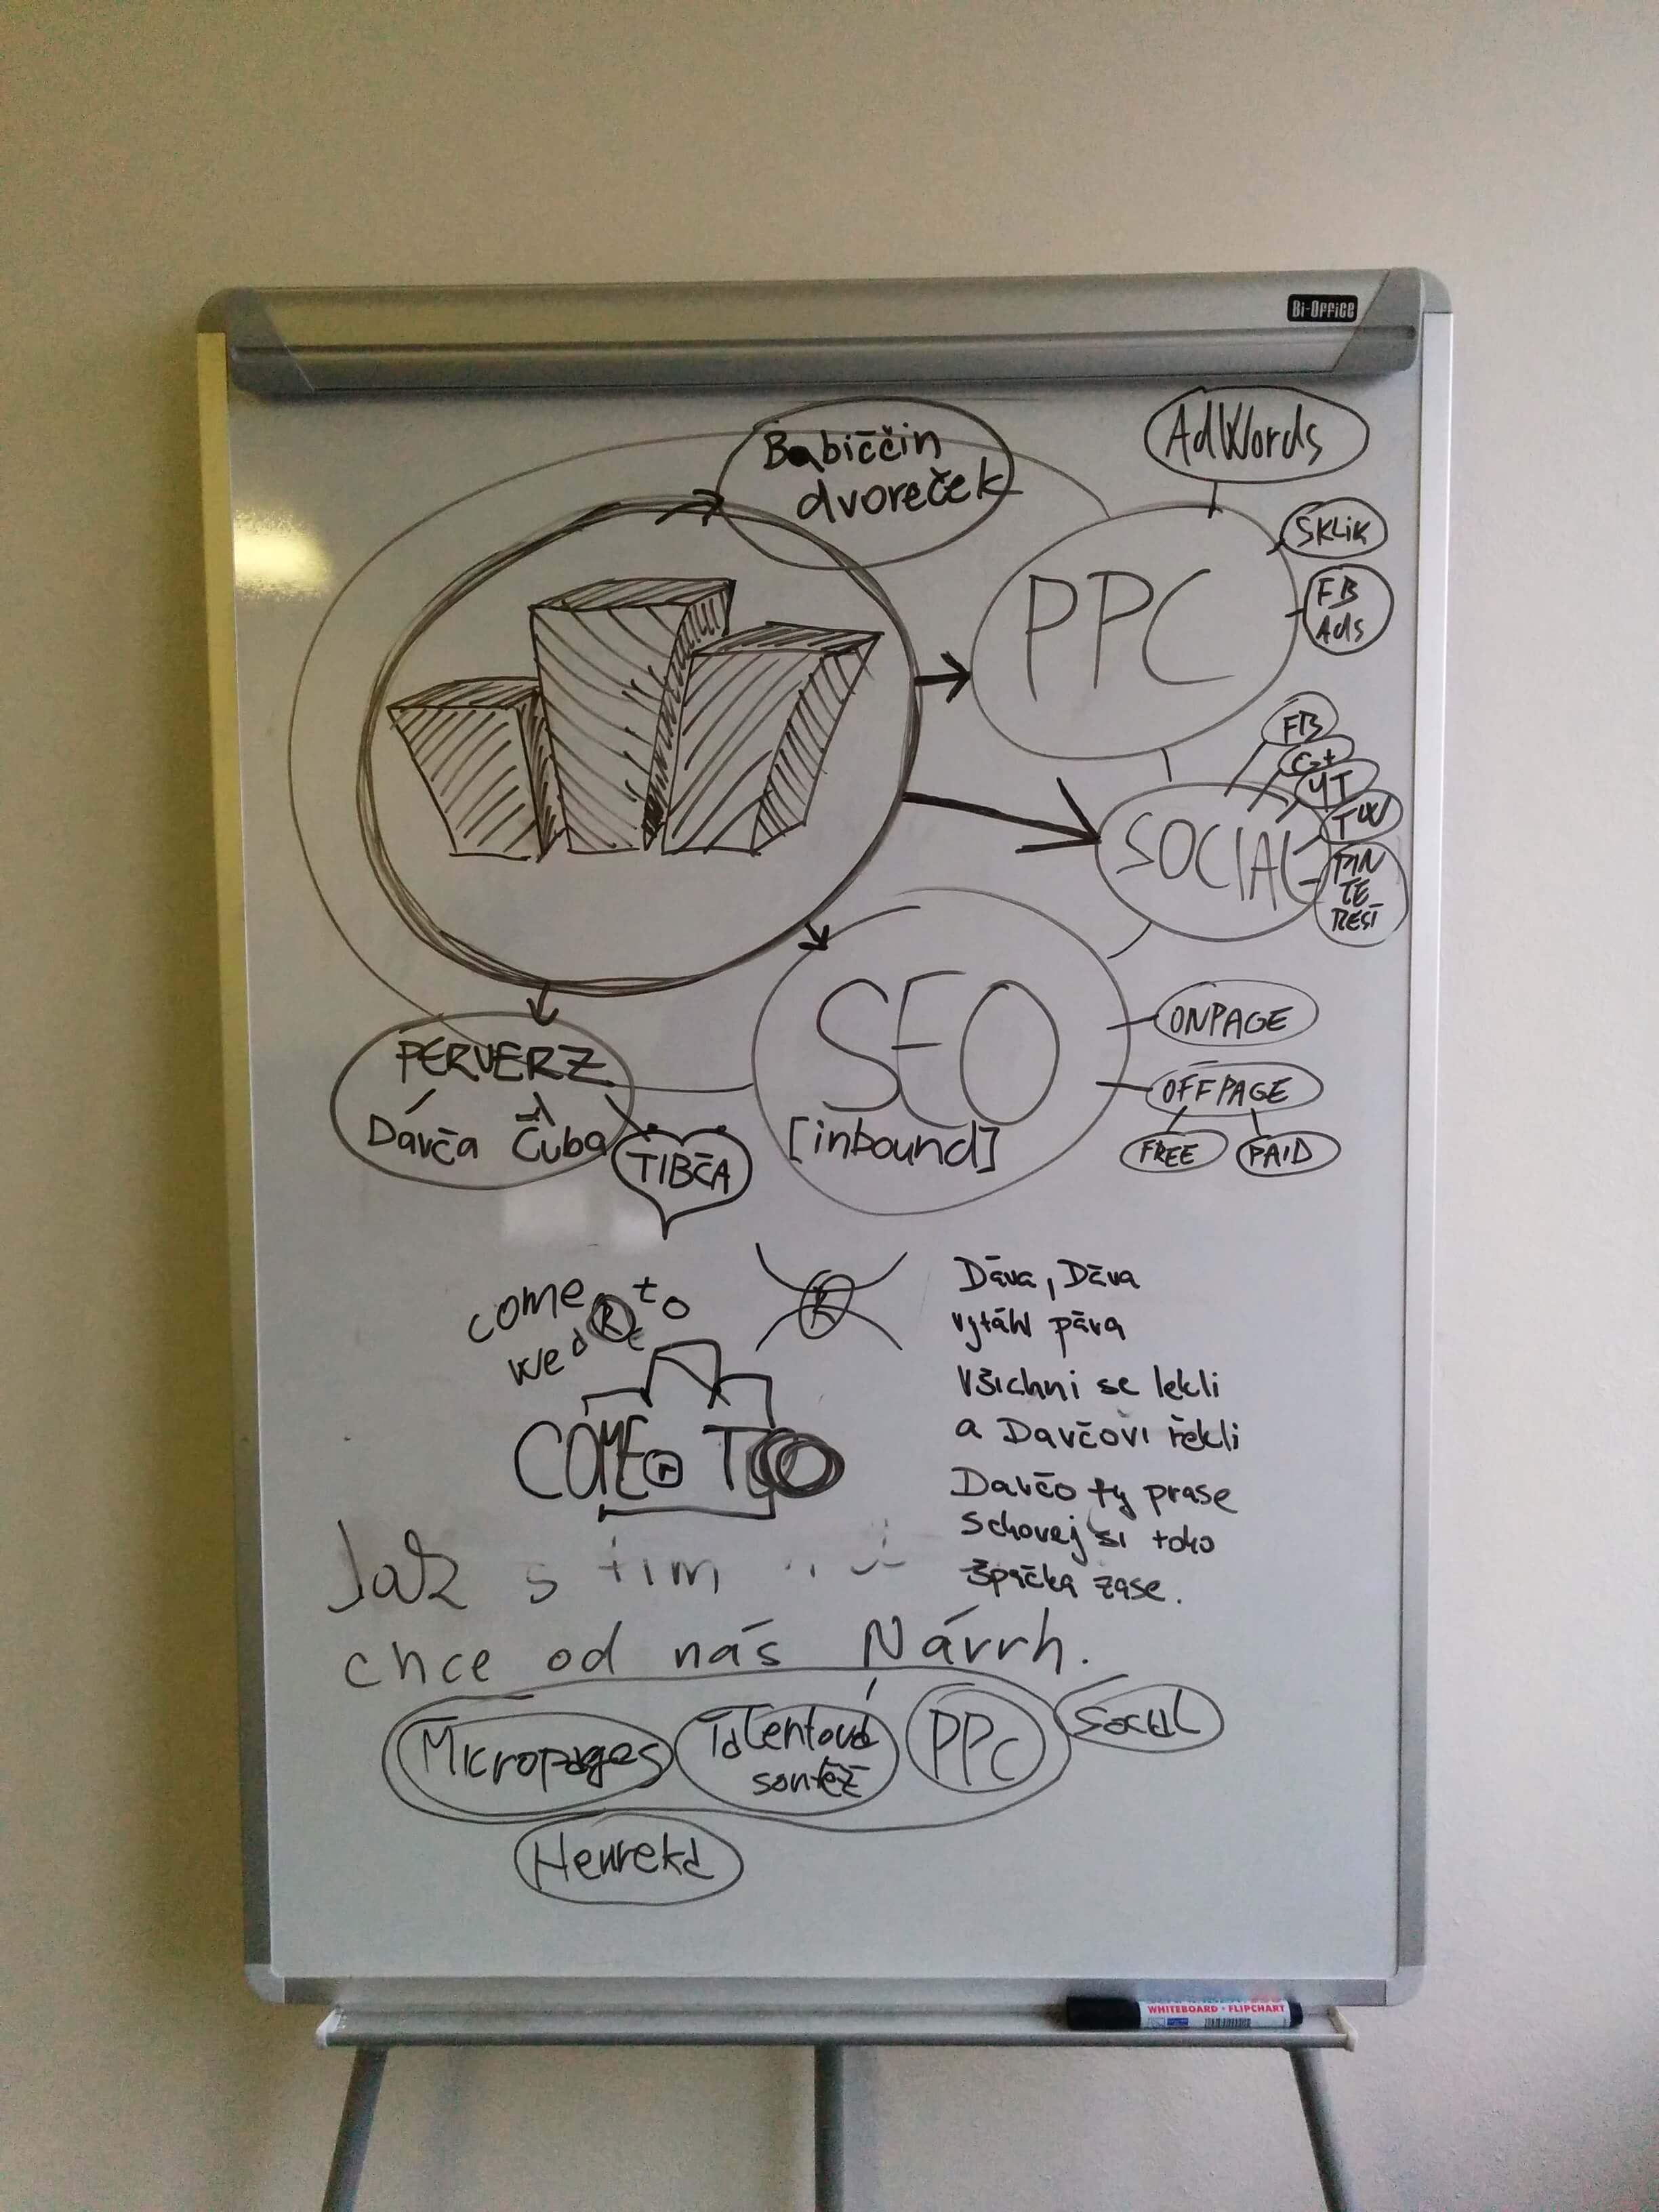 Bi-Office
Babiččin
dvoreček
AdWords
SKLIK
FB
Ads
PPC
FB
G+
YT
TW
PIN
TE
REST
SOCIAL
SEO
[inbound]
ONPAGE
OFFPAGE
FREE
PAID
PERVERZ
Davča Čuba
TIBČA
come to
R
COME r TO
Dáva, Dáva
vytáhl páva
Všichni se lekli
a Davčovi řekli
Davčo ty prase
Schovej si toho
špačka zase.
s tím
chce od nás Návrh.
Micropages
Talentová
soutěž
PPC
Social
Heureka
WHITEBOARD · FLIPCHART